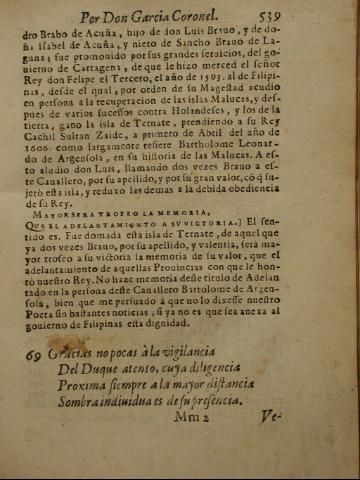 Por Don Garcia Coronel. 539
dro Brabo de Acuña, hijo de don Luis Brauo, y de do-
ña Isabel de Acuña, y nieto de Sancho Brauo de La-
guna; fue promouido por sus grandes seruicios, del go-
uierno de Cartagena, de que le hizo merced el señor
Rey don Felipe el Tercero, el año de 1593. al de Filipi-
nas, desde el qual, por orden de su Magestad acudio
en persona a la recuperacion de las islas Malucas, y des-
pues de varios sucessos contra Holandeses, y los de la
tierra, gano la isla de Ternate, prendiendo a su Rey
Cachil Sultan Zaide, a primero de Abril del año de
1606. como largamente refiere Bartholome Leonar-
do de Argensola, en su historia de las Malucas. A es-
to aludio don Luis, llamando dos vezes Brauo a es-
te Cauallero, por su apellido, y por su gran valor, cõ q̃ su-
jerò esta isla, y reduxo las demas a la debida obediencia
de su Rey.
MAYOR SERA TROFEO LA MEMORIA,
QUE EL ADELANTAMIENTO A SU VICTORIA.] El sen-
tido es. Fue domada esta isla de Ternate, de aquel que
ya dos vezes Brauo, por su apellido, y valentia, sera ma-
yor trofeo a su victoria la memoria de su valor, que el
adelantamiento de aquellas Prouincias con que le hon-
rò nuestro Rey. No haze memoria deste titulo de Adelan
tado en la persona deste Cauallero Bartolome de Argen-
sola, bien que me persuado à que no lo dixesse nuestro
Poeta sin bastantes noticias, si ya no es que sea anexa al
gouierno de Filipinas esta dignidad.
69 Gracias no pocas à la vigilancia
Del Duque atento, cuya diligencia
Proxima siempre a la mayor distancia
Sombra indiuidua es de su presencia.
Mm 2 Ve-